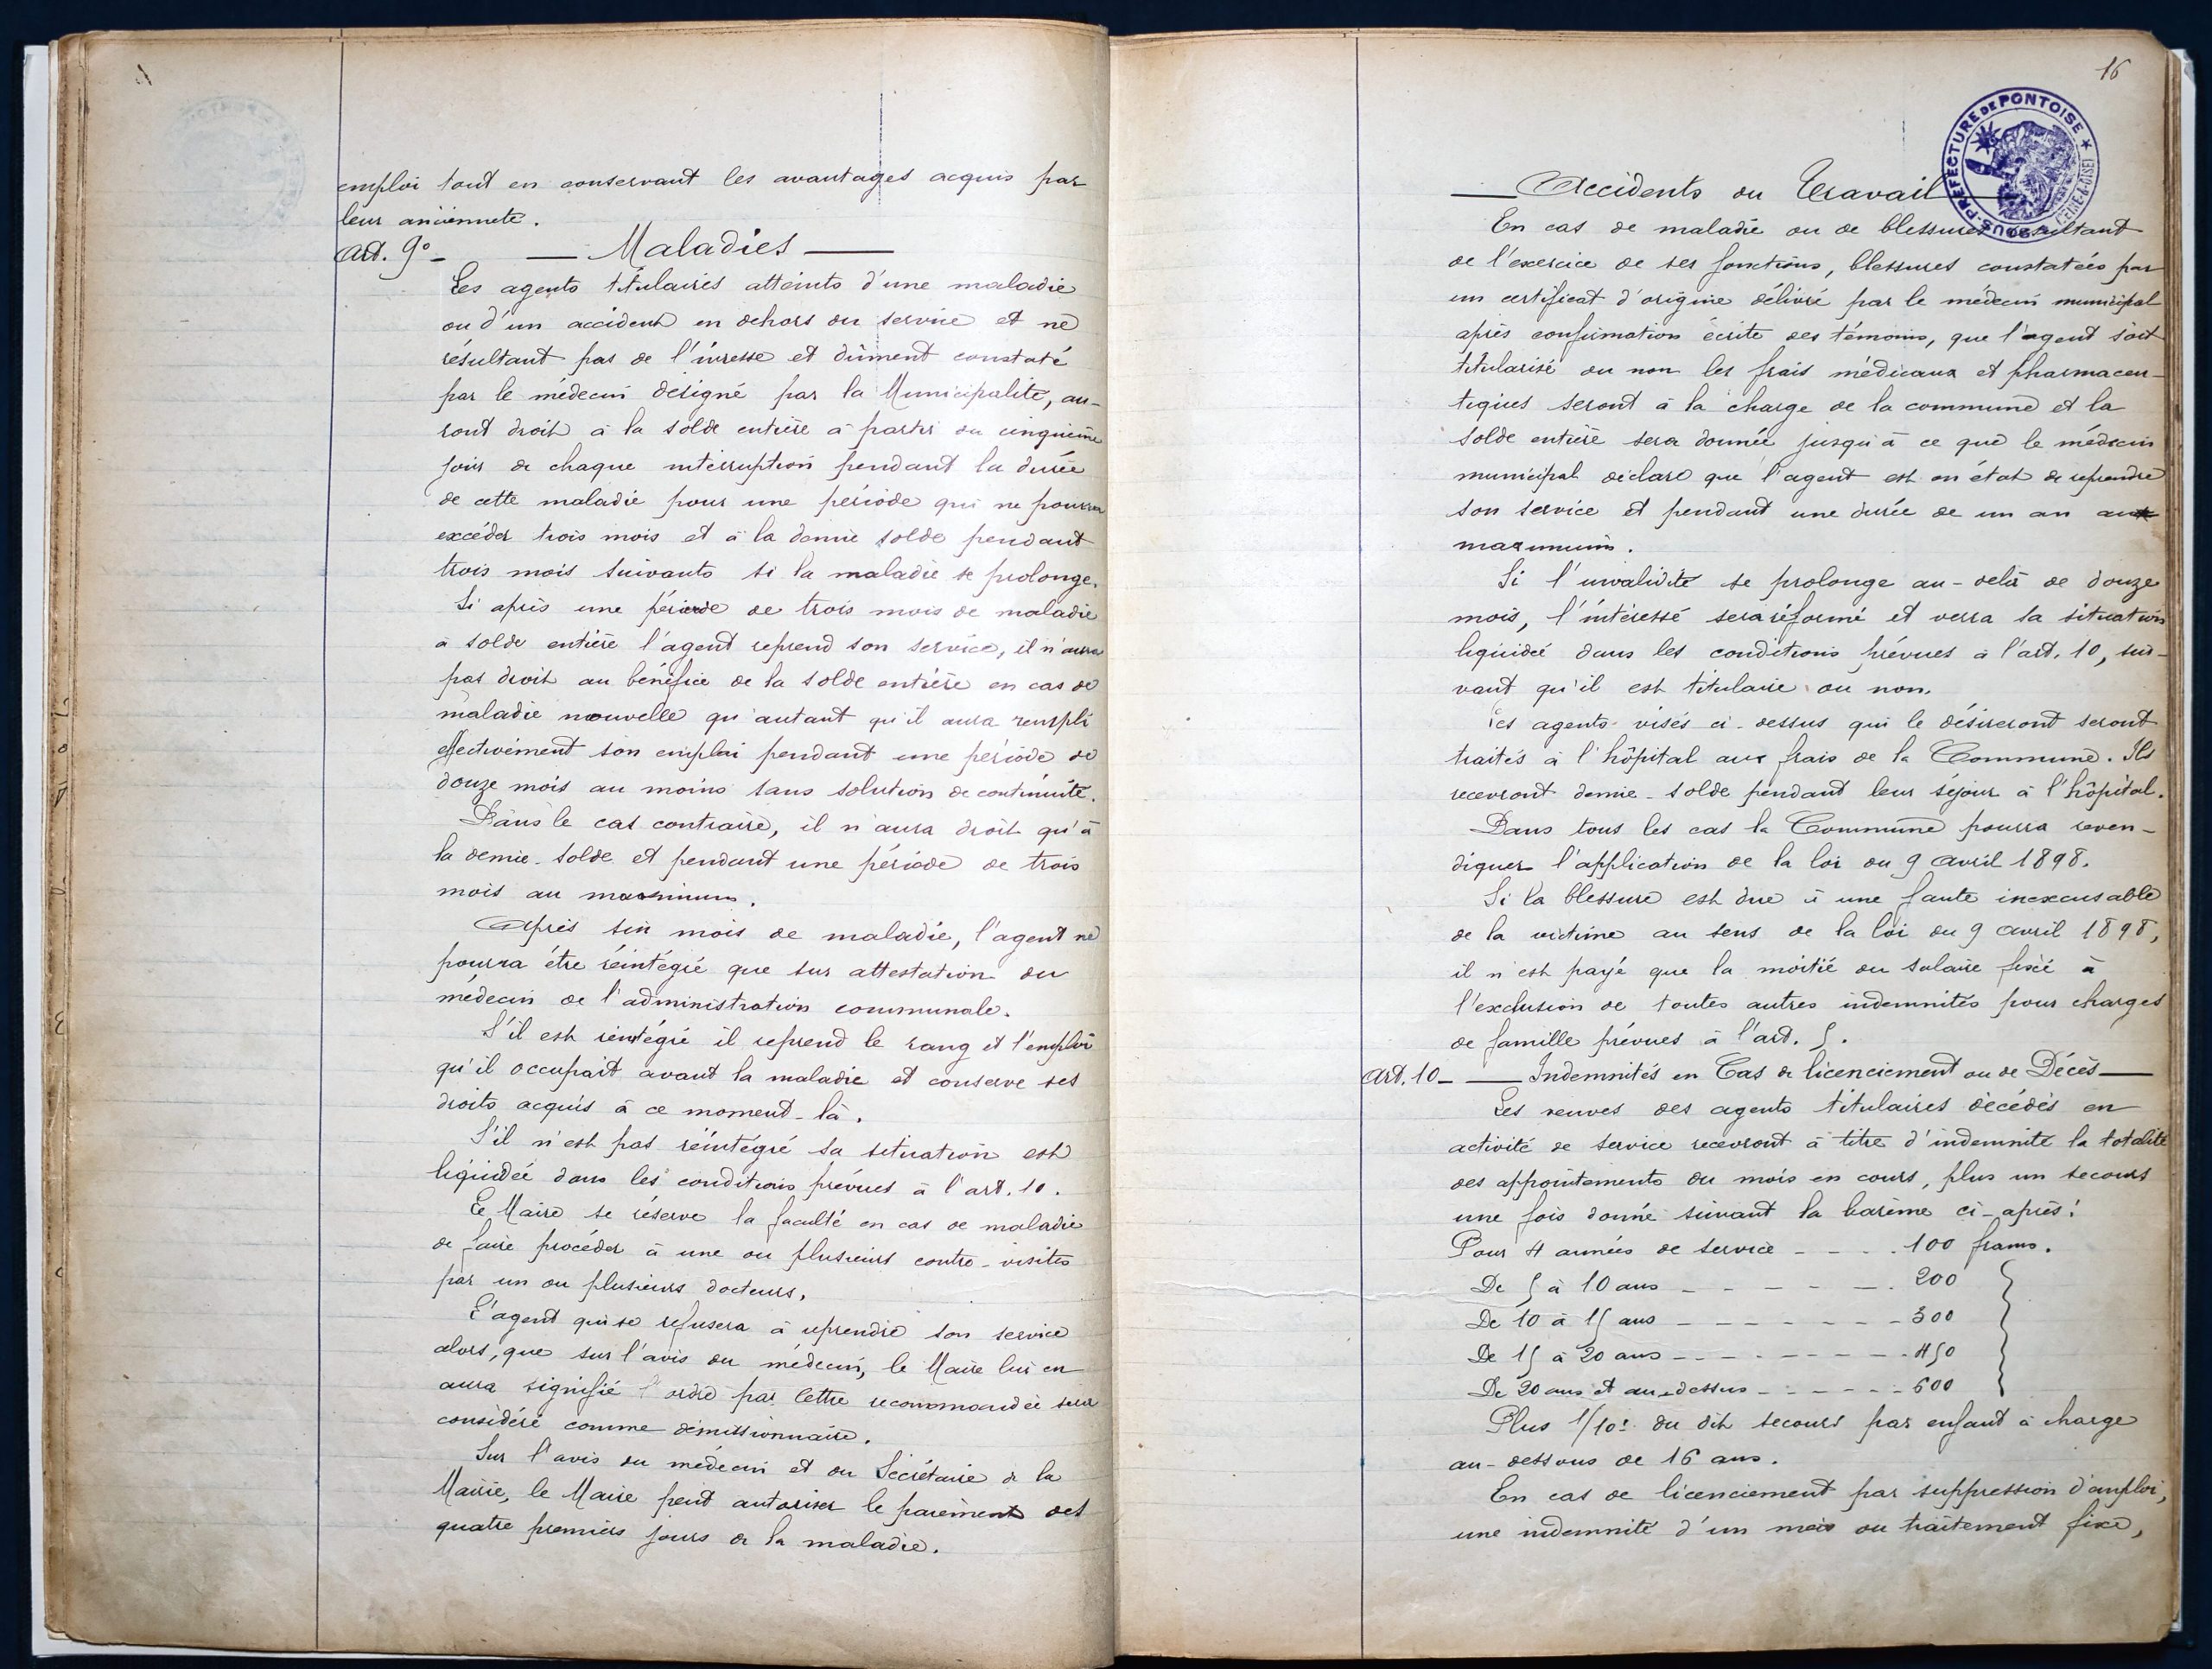 emploi tout en conservant les avantages acquis par
leur ancienneté.
Art. 9° — Maladies —
Les agents titulaires atteints d'une maladie
ou d'un accident en dehors du service et ne
résultant pas de l'ivresse et dûment constaté
par le médecin désigné par la Municipalité, au-
ront droit à la solde entière à partir du cinquième
jour de chaque interruption pendant la durée
de cette maladie pour une période qui ne pourra
excéder trois mois et à la demie solde pendant
trois mois suivants si la maladie se prolonge.
Si après une période de trois mois de maladie
à solde entière l'agent reprend son service, il n'aura
pas droit au bénéfice de la solde entière en cas de
maladie nouvelle qu'autant qu'il aura rempli
effectivement son emploi pendant une période de
douze mois au moins sans solution de continuité.
Dans le cas contraire, il n'aura droit qu'à
la demie-solde et pendant une période de trois
mois au maximum.
Après six mois de maladie, l'agent ne
pourra être réintégré que sur attestation du
médecin de l'administration communale.
S'il est réintégré il reprend le rang et l'emploi
qu'il occupait avant la maladie et conserve ses
droits acquis à ce moment-là.
S'il n'est pas réintégré sa situation est
liquidée dans les conditions prévues à l'art. 10.
Le Maire se réserve la faculté en cas de maladie
de faire procéder à une ou plusieurs contre-visites
par un ou plusieurs docteurs.
L'agent qui se refusera à reprendre son service
alors, que sur l'avis du médecin, le Maire lui en
aura signifié l'ordre par lettre recommandée sera
considéré comme démissionnaire.
Sur l'avis du médecin et du Secrétaire de la
Mairie, le Maire peut autoriser le paiement des
quatre premiers jours de la maladie.
16
SOUS-PREFECTURE DE PONTOISE * SEINE-&-OISE
— Accidents du Travail —
En cas de maladie ou de blessures résultant
de l'exercice de ses fonctions, blessures constatées par
un certificat d'origine délivré par le médecin municipal
après confirmation écrite des témoins, que l'agent soit
titularisé ou non les frais médicaux et pharmaceu-
tiques seront à la charge de la commune et la
solde entière sera donnée jusqu'à ce que le médecin
municipal déclare que l'agent est en état de reprendre
son service et pendant une durée de un an au
maximum.
Si l'invalidité se prolonge au-delà de douze
mois, l'intéressé sera réformé et verra sa situation
liquidée dans les conditions prévues à l'art. 10, sui-
vant qu'il est titulaire ou non.
Les agents visés ci-dessus qui le désireront seront
traités à l'hôpital aux frais de la Commune. Ils
recevront demie-solde pendant leur séjour à l'hôpital.
Dans tous les cas la Commune pourra reven-
diquer l'application de la loi du 9 Avril 1898.
Si la blessure est due à une faute inexcusable
de la victime au sens de la loi du 9 Avril 1898,
il n'est payé que la moitié du salaire fixé à
l'exclusion de toutes autres indemnités pour charges
de famille prévues à l'art. 5.
Art. 10 — Indemnités en Cas de licenciement ou de Décès —
Les veuves des agents titulaires décédés en
activité de service recevront à titre d'indemnité la totalité
des appointements du mois en cours, plus un secours
une fois donné suivant la barème ci-après:
Pour 4 années de service - - - . 100 francs.
De 5 à 10 ans - - - - - . 200
De 10 à 15 ans - - - - - - - 300
De 15 à 20 ans - - - - - - - - 450
De 20 ans et au-dessus - - - - - - 600
Plus 1/10e du dit secours par enfant à charge
au-dessous de 16 ans.
En cas de licenciement par suppression d'emploi,
une indemnité d'un mois du traitement fixe,